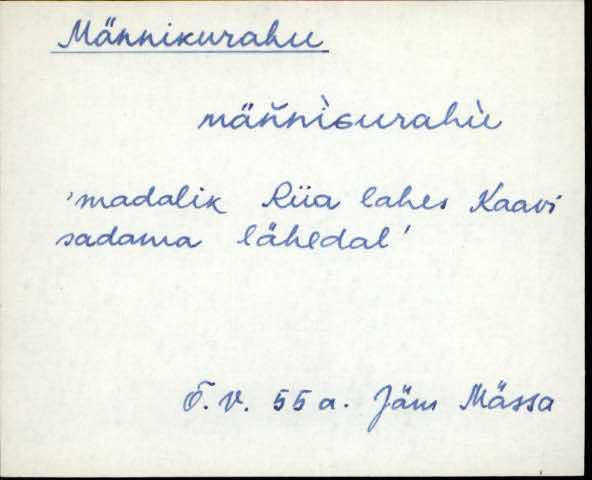 Männikurahu
mäňnìɢurahù
'madalik Riia lahes Kaavi
sadama lähedal'
Õ. V. 55 a. Jäm Mässa